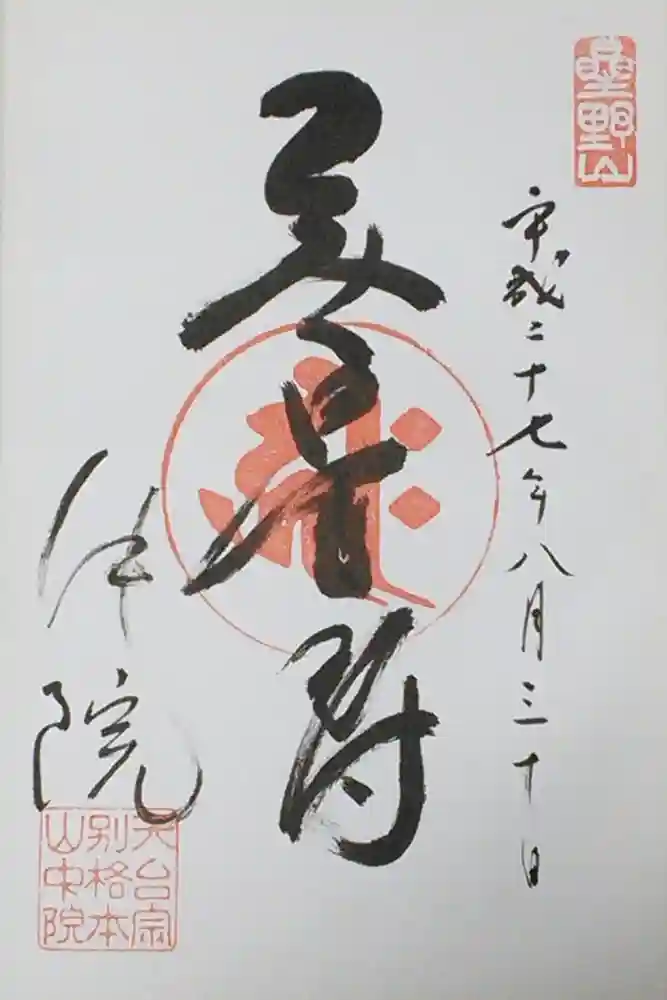 星野山
平成二十七年八月三十日
無量寿
院
天台宗
別格本
山中院